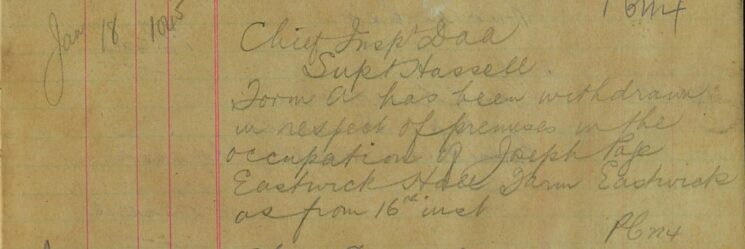 Jan 18 1045
Chief Inspr Daa
Supt Hassell.
Form A has been withdrawn
in respect of premises in the
occupation of Joseph Page
Eastwick Hall Farm Eastwick
as from 16th inst